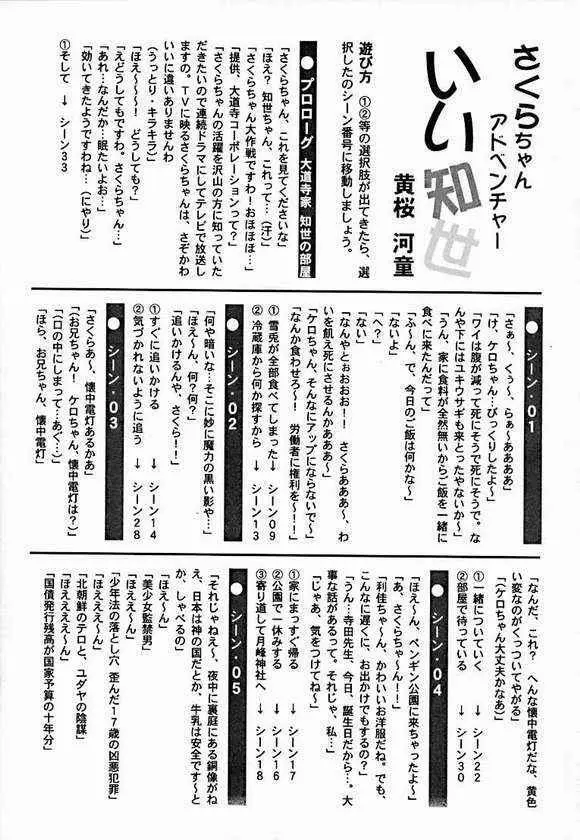 さくらちゃん
アドベンチャー
いい知世
黄桜 河童
遊び方 ①②等の選択肢が出てきたら、選
択したのシーン番号に移動しましょう。
●プロローグ 大道寺家 知世の部屋
「さくらちゃん、これを見てくださいな」
「ほえ？ 知世ちゃん、これって…（汗）」
「さくらちゃん大作戦ですわ！おほほほ…」
「提供、大道寺コーポレーションって？」
「さくらちゃんの活躍を沢山の方に知っていた
だきたいので連続ドラマにしてテレビで放送し
ますの。TVに映るさくらちゃんは、さぞかわ
いいに違いありませんわ
（うっとり・キラキラ）
「ほえ〜〜〜！ どうしても？」
「えどうしてもですわ。さくらちゃん…」
「あれ…なんだか…眠たいよお…」
「効いてきたようですわね…（にやり）」
①そして → シーン33
●シーン・01
「さぁ〜、くぅ〜、らぁ〜ああああ」
「け、ケロちゃん…びっくりしたよ〜」
「ワイは腹が減って死にそうで死にそうで。な
んや下にはユキウサギも来とったやないか〜」
「うん、家に食料が全然無いからご飯を一緒に
食べに来たんだって」
「ふ〜ん、で、今日のご飯は何かな〜」
「ないよ」
「へ？」
「ない」
「なんやとぉおおお！ さくらあああ〜、わ
いを飢え死にさせるんかあああ〜」
「ケロちゃん、そんなにアップにならないで〜」
「なんか食わせろ〜！ 労働者に権利を〜！！」
① 雪兎が全部食べてしまった→ シーン09
② 冷蔵庫から何か探すから → シーン13
●シーン・02
「何や暗いな…そこに妙に魔力の黒い影や…」
「ほえ〜ん、何？何？」
「追いかけるんや、さくら！！」
①すぐに追いかける → シーン14
②気づかれないように追う → シーン28
●シーン・03
「さくらあ〜、懐中電灯あるかあ」
「（お兄ちゃん！ ケロちゃん、懐中電灯は？）」
「（口の中にしまって…あぐ…）」
「ほら、お兄ちゃん、懐中電灯」
「なんだ、これ？ へんな懐中電灯だな、黄色
い変なのがくっついてやがる」
「（ケロちゃん大丈夫かなあ）」
①一緒についていく → シーン22
②部屋で待っている → シーン30
●シーン・04
「ほえ〜ん、ペンギン公園に来ちゃったよ〜」
「あ、さくらちゃ〜ん！！」
「利佳ちゃ〜ん、かわいいお洋服だね。でも、
こんなに遅くに、お出かけでもするの？」
「うん…寺田先生、今日、誕生日だから…。大
事な話があるって。それじゃ、私…」
「じゃあ、気をつけてね〜」
①家にまっすぐ帰る → シーン17
②公園で一休みする → シーン16
③寄り道して月峰神社へ → シーン18
●シーン・05
「それじゃねえ〜、夜中に裏庭にある銅像がね
え、日本は神の国だとか、牛乳は安全です〜と
か、しゃべるの」
「ほえ〜ん」
「美少女監禁男」
「ほええ〜ん」
「少年法の落とし穴 歪んだ17歳の凶悪犯罪」
「ほえええ〜ん」
「北朝鮮のテロと、ユダヤの陰謀」
「ほええええ〜ん」
「国債発行残高が国家予算の十年分」